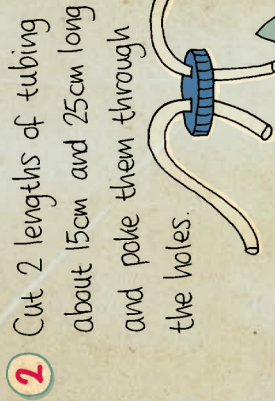 2 Cut 2 lengths of tubing
about 15cm and 25cm long
and poke them through
the holes.